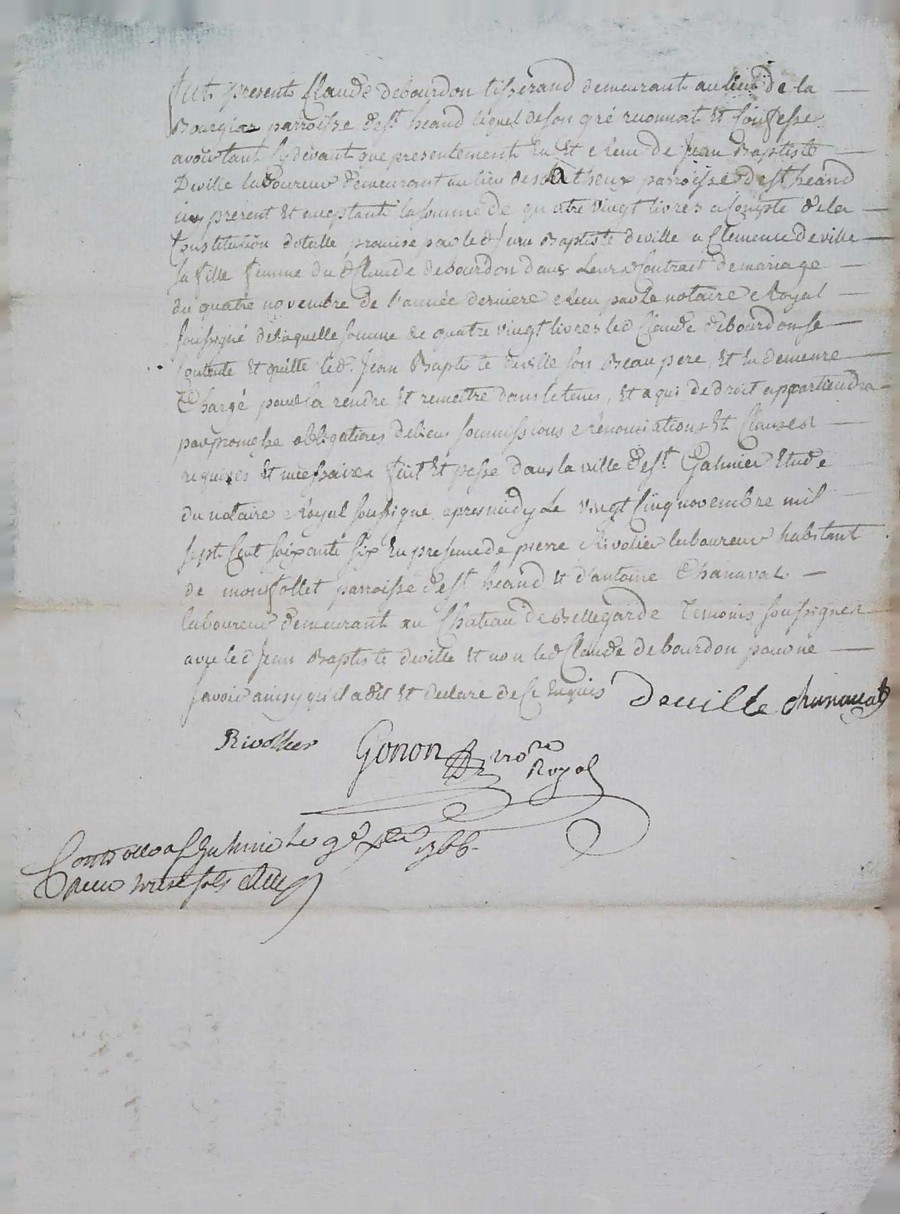 fut present Claude debourdon tisserand demeurant au lieu de la
Bourgiat parroisse de st heand lequel de son gré reconnait et confesse
avoir tant cy devant que presentement eu et receu de Jean Baptiste
Deville laboureur demeurant au lieu des parroisse de st heand
icy présent et acceptant la somme de quatre vingt livres a compte de la
Constitution dotalle promise par led Jean Baptiste deville a Clemence deville
sa fille femme du d Claude debourdon dans leur Contrait de mariage
du quatre novembre de l'année derniere receu par le notaire Royal
soussigné de laquelle somme de quatre vingt livres led Claude debourdon se
contente et quitte led. Jean Baptiste deville son Beau pere, et en demeure
Chargé pour la rendre et remettre dans le tems, et a qui de droit appartiendra
par promesse obligations de biens soumissions rénonciations et Clauses
requises et necessaires fait et passé dans la ville de st Galmier Etude
du notaire Royal soussigné apres midy Le vingt cinq novembre mil
sept Cent soixante six En presence de pierre Rivolier laboureur habitant
de montfollet parroisse de st heand et d'antoine Chanavat
laboureur demeurant au Chateau de Bellegarde Temoins soussignés
avec led Jean Baptiste deville et non led Claude debourdon pour ne
savoir ainsy qu il a dit et declaré de ce Enquis Deville chanavat
Rivollier Gonon nore Royal
Controllé a st Galmier le 9e xbre 1766
Reçu treize sols